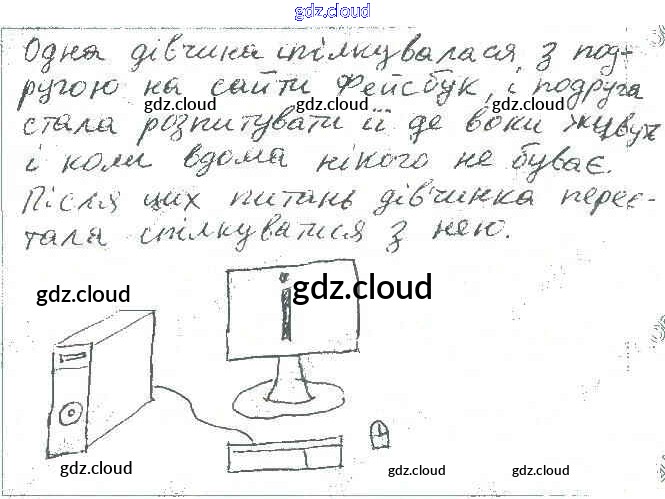 gdz.cloud
Одна дівчина спілкувалася з под-
ругою на сайти Фейсбук, і подруга
gdz.cloud gdz.cloud gdz.cloud
стала розпитувати її де воки живуть
і коли вдома нікого не буває.
Після цих питань дівчинка перес-
тала спілкуватися з нею.
gdz.cloud gdz.cloud
i
gdz.cloud gdz.cloud gdz.cloud